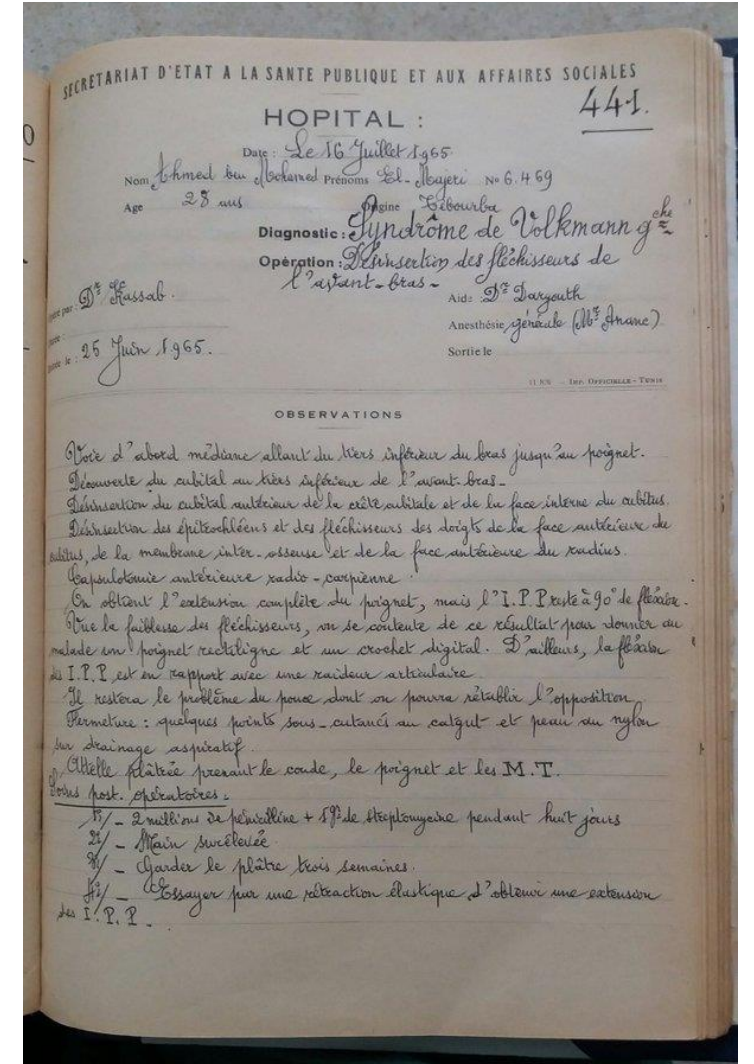 SECRETARIAT D'ETAT A LA SANTE PUBLIQUE ET AUX AFFAIRES SOCIALES
441.
HOPITAL :
Date : Le 16 Juillet 1965
Nom Ahmed ben Mohamed Prénoms El-Majeri No 6.469
Age 28 ans Origine Tébourba
Diagnostic : Syndrôme de Volkmann gche
Opération : Désinsertion des fléchisseurs de
l'avant-bras -
par : Dr Kassab.
Aide : Dr Dargouth
Anesthésie générale (Mr Anane)
le : 25 Juin 1965.
Sortie le
Imp. Officielle - Tunis
OBSERVATIONS
Voie d'abord médiane allant du tiers inférieur du bras jusqu'au poignet.
Découverte du cubital au tiers inférieur de l'avant-bras -
Désinsertion du cubital antérieur de la crête cubitale et de la face interne du cubitus.
Désinsertion des épitrochléens et des fléchisseurs des doigts de la face antérieure du
cubitus, de la membrane inter-osseuse et de la face antérieure du radius.
Capsulotomie antérieure radio-carpienne.
On obtient l'extension complète du poignet, mais l'I.P.P reste à 90° de fléxion.
Vue la faiblesse des fléchisseurs, on se contente de ce résultat pour donner au
malade un poignet rectiligne et un crochet digital. D'ailleurs, la fléxion
des I.P.P est en rapport avec une raideur articulaire.
Il restera le problème du pouce dont on pourra rétablir l'opposition.
Fermeture : quelques points sous-cutanés au catgut et peau au nylon
sur drainage aspiratif.
Attelle plâtrée prenant le coude, le poignet et les M.T.
Soins post. opératoires :
1°/ - 2 millions de pénicilline + 1gr de streptomycine pendant huit jours
2°/ - Main surélevée.
3°/ - Garder le plâtre trois semaines.
4°/ - Essayer par une rétraction élastique d'obtenir une extension
des I.P.P -